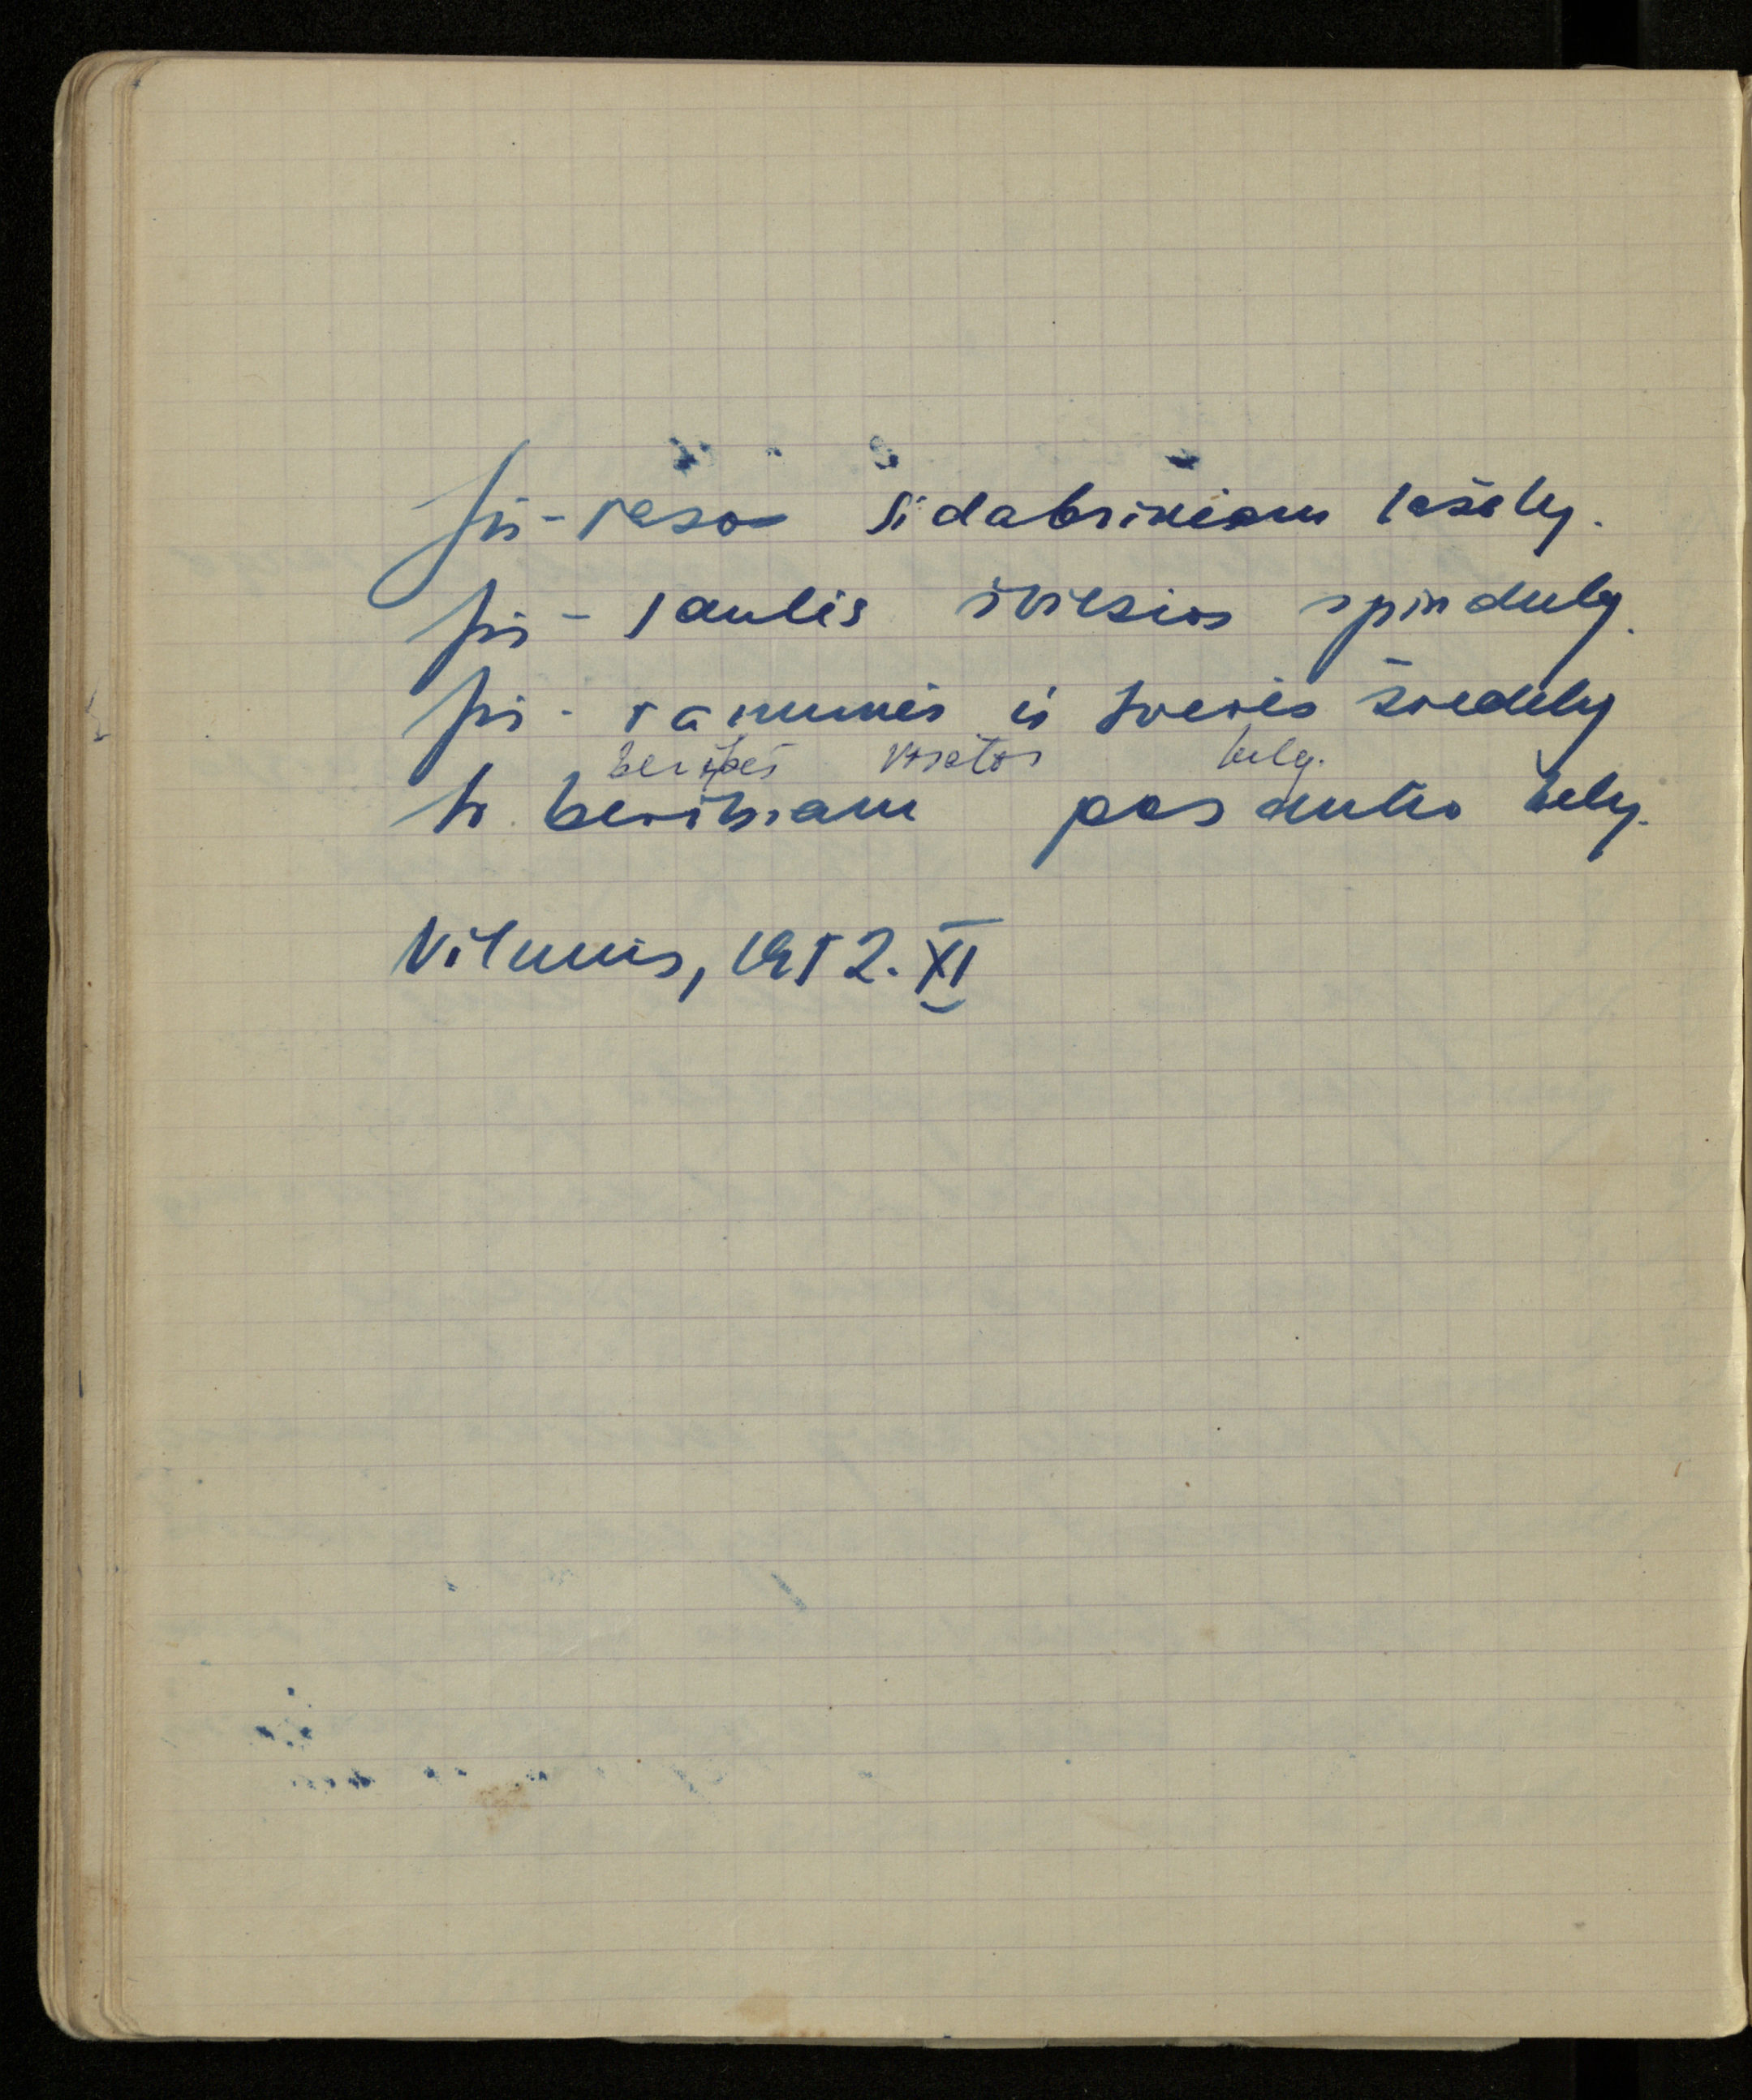 Jis - rasos sidabriniam lašely.
Jis - saulės šviesios spinduly.
Jis - ramunės ir svėrės žiedely
beribės vasaros kely.
Jis beribiam pasaulio kely.
Vilnius, 1952.XI